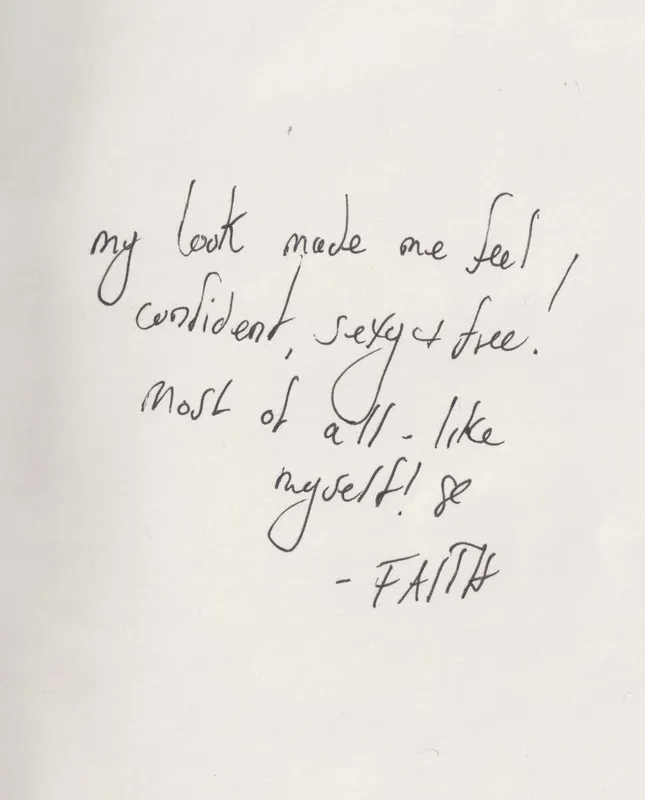 my look made me feel,
confident, sexy & free!
most of all - like
myself!
- FAITH